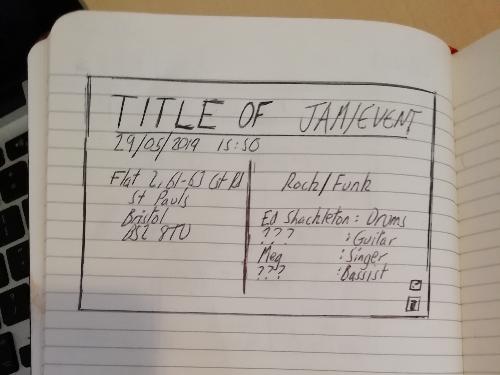 TITLE OF JAM/EVENT
29/05/2019 15:30
Flat 2, 61-63 Gt Rd
St Pauls
Bristol
BS2 8TU
Rock/Funk
Ed Shackleton: Drums
??? : Guitar
Meg : Singer
??? : Bassist